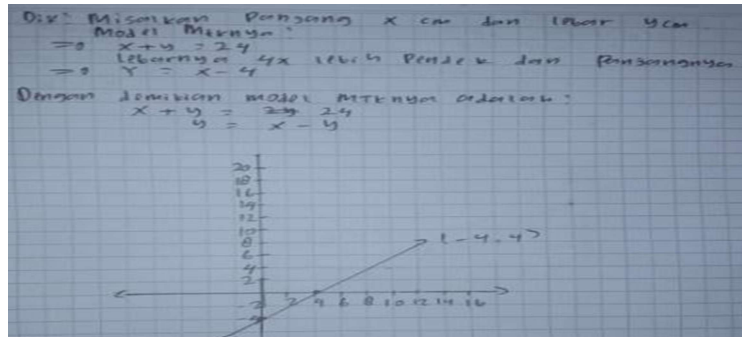 Dik: Misalkan Panjang x cm dan lebar y cm
Model Mtrnya:
=> x + y = 24
lebarnya 4x lebih Pendek dan Panjangnya
=> Y = x - 4
Dengan demikian model MTKnya adalah:
x + y = 24
y = x - y
20
18
16
14
12
10
8
6
4
2
2 4 6 8 10 12 14 16
-2
-4
(-4.4)